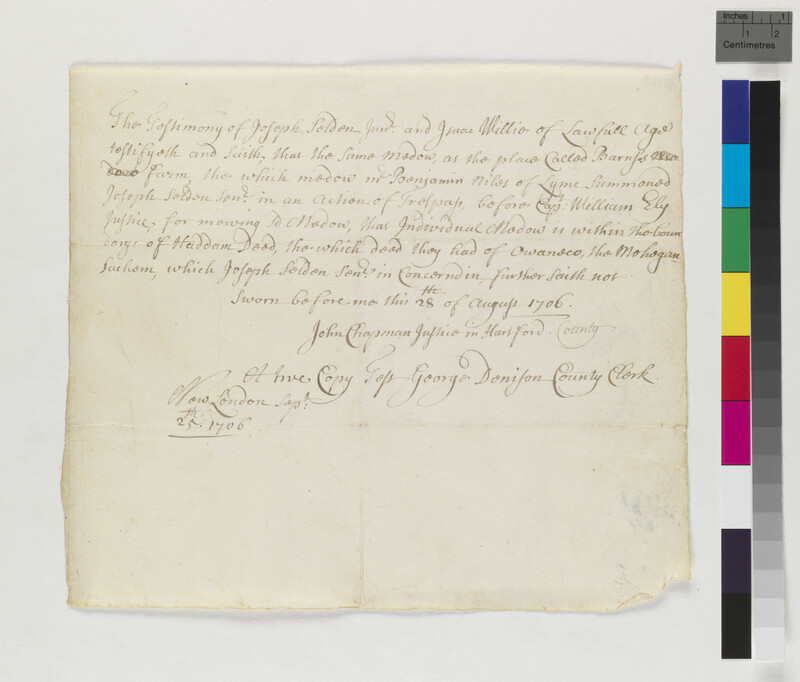 The Testimony of Joseph Selden Junr. and Isaac Willie of Lawfull Age
testifyeth and Saith, that the same Medow at the place Called Barnses
farm the which medow mr. Benjamin Niles of Lyme Summoned
Joseph Selden Senr. in an action of Trespass, before Capt. William Ely
Justice, for mowing sd Medow, that Individual Medow is within the boun
darys of Haddam Deed, the which deed they had of Owaneco, the Mohegan
Sachem, which Joseph Selden Senr. in Concerndin, further saith not
Sworn before me this 28th of August 1706.
John Chapman Justice in Hartford County
A true Copy Test George Denison County Clerk
New London Sept.
25th. 1706
Inches 1
1 2
Centimetres